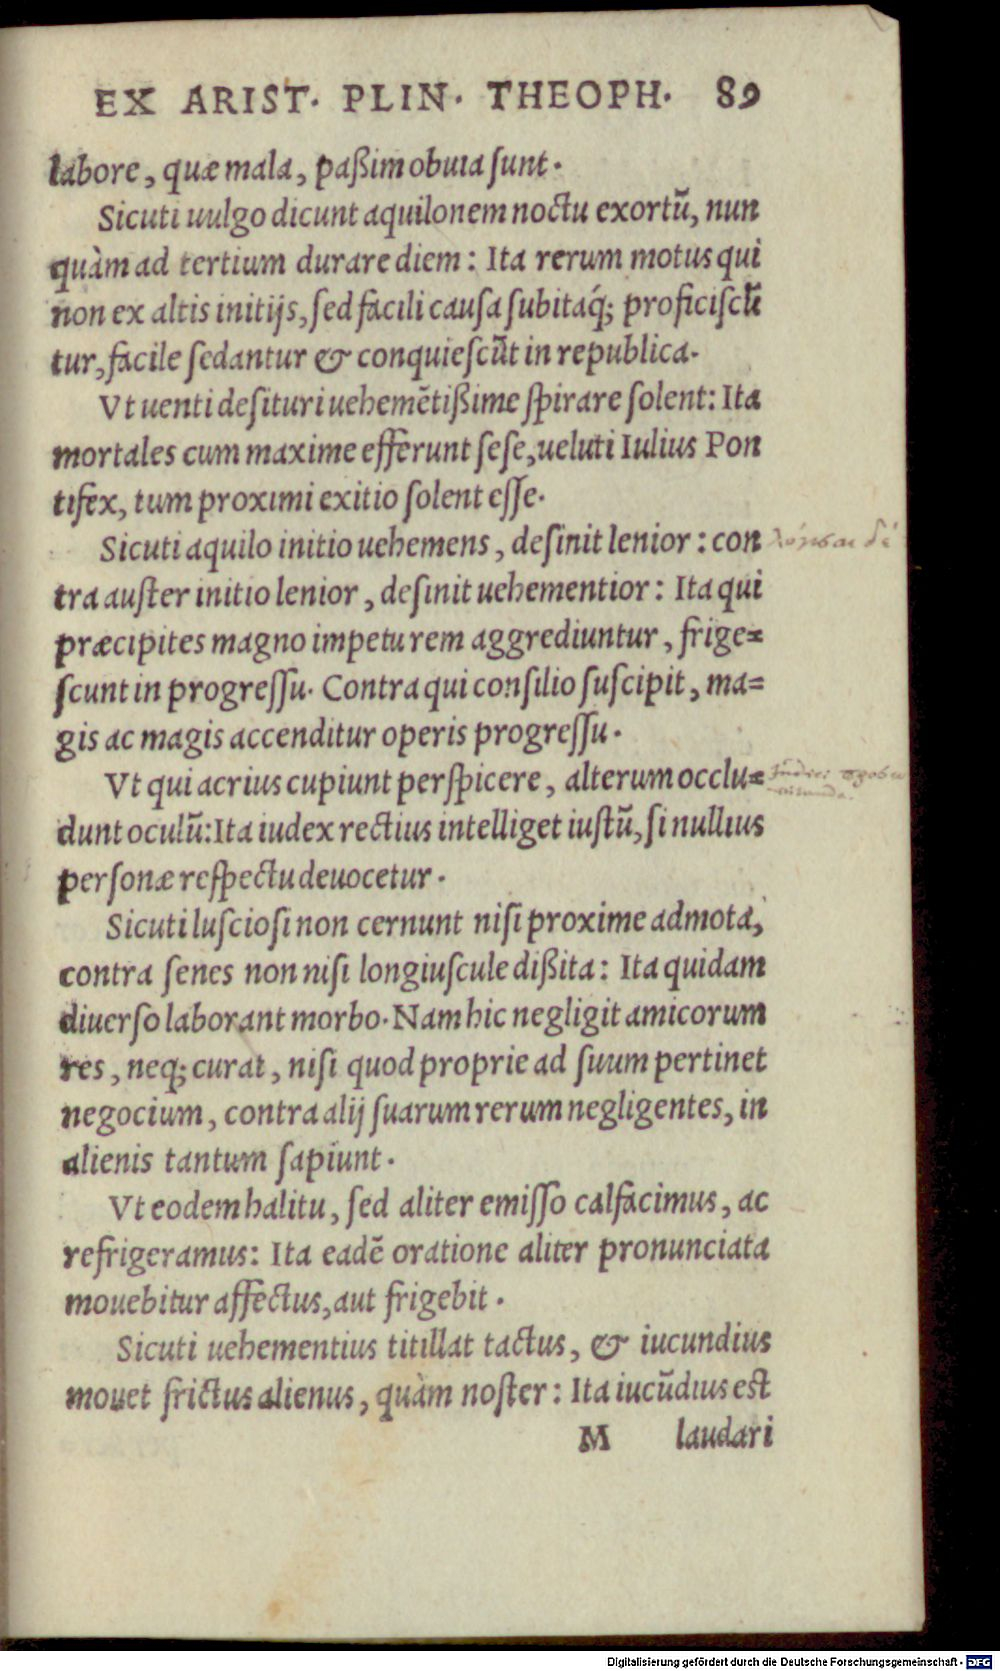 EX ARIST. PLIN. THEOPH. 89
labore, quæ mala, paßim obuia ſunt.
Sicuti uulgo dicunt aquilonem noctu exortũ, nun
quàm ad tertium durare diem: Ita rerum motus qui
non ex altis initijs, ſed facili cauſa ſubitaq́; proficiſcũ
tur, facile ſedantur & conquieſcũt in republica.
Vt uenti deſituri uehemẽtißime ſpirare ſolent: Ita
mortales cum maxime efferunt ſeſe, ueluti Iulius Pon
tifex, tum proximi exitio ſolent eſſe.
Sicuti aquilo initio uehemens, deſinit lenior: con
tra auſter initio lenior, deſinit uehementior: Ita qui
præcipites magno impetu rem aggrediuntur, frige=
ſcunt in progreſſu. Contra qui conſilio ſuſcipit, ma=
gis ac magis accenditur operis progreſſu.
Vt qui acrius cupiunt perſpicere, alterum occlu=
dunt oculũ: Ita iudex rectius intelliget iuſtũ, ſi nullius
perſonæ reſpectu deuocetur.
Sicuti luſcioſi non cernunt niſi proxime admota,
contra ſenes non niſi longiuſcule dißita: Ita quidam
diuerſo laborant morbo. Nam hic negligit amicorum
res, neq; curat, niſi quod proprie ad ſuum pertinet
negocium, contra alij ſuarum rerum negligentes, in
alienis tantum ſapiunt.
Vt eodem halitu, ſed aliter emiſſo calfacimus, ac
refrigeramus: Ita eadẽ oratione aliter pronunciata
mouebitur affectus, aut frigebit.
Sicuti uehementius titillat tactus, & iucundius
mouet frictus alienus, quàm noſter: Ita iucũdius eſt
M laudari
Digitalisierung gefördert durch die Deutsche Forschungsgemeinschaft - DFG